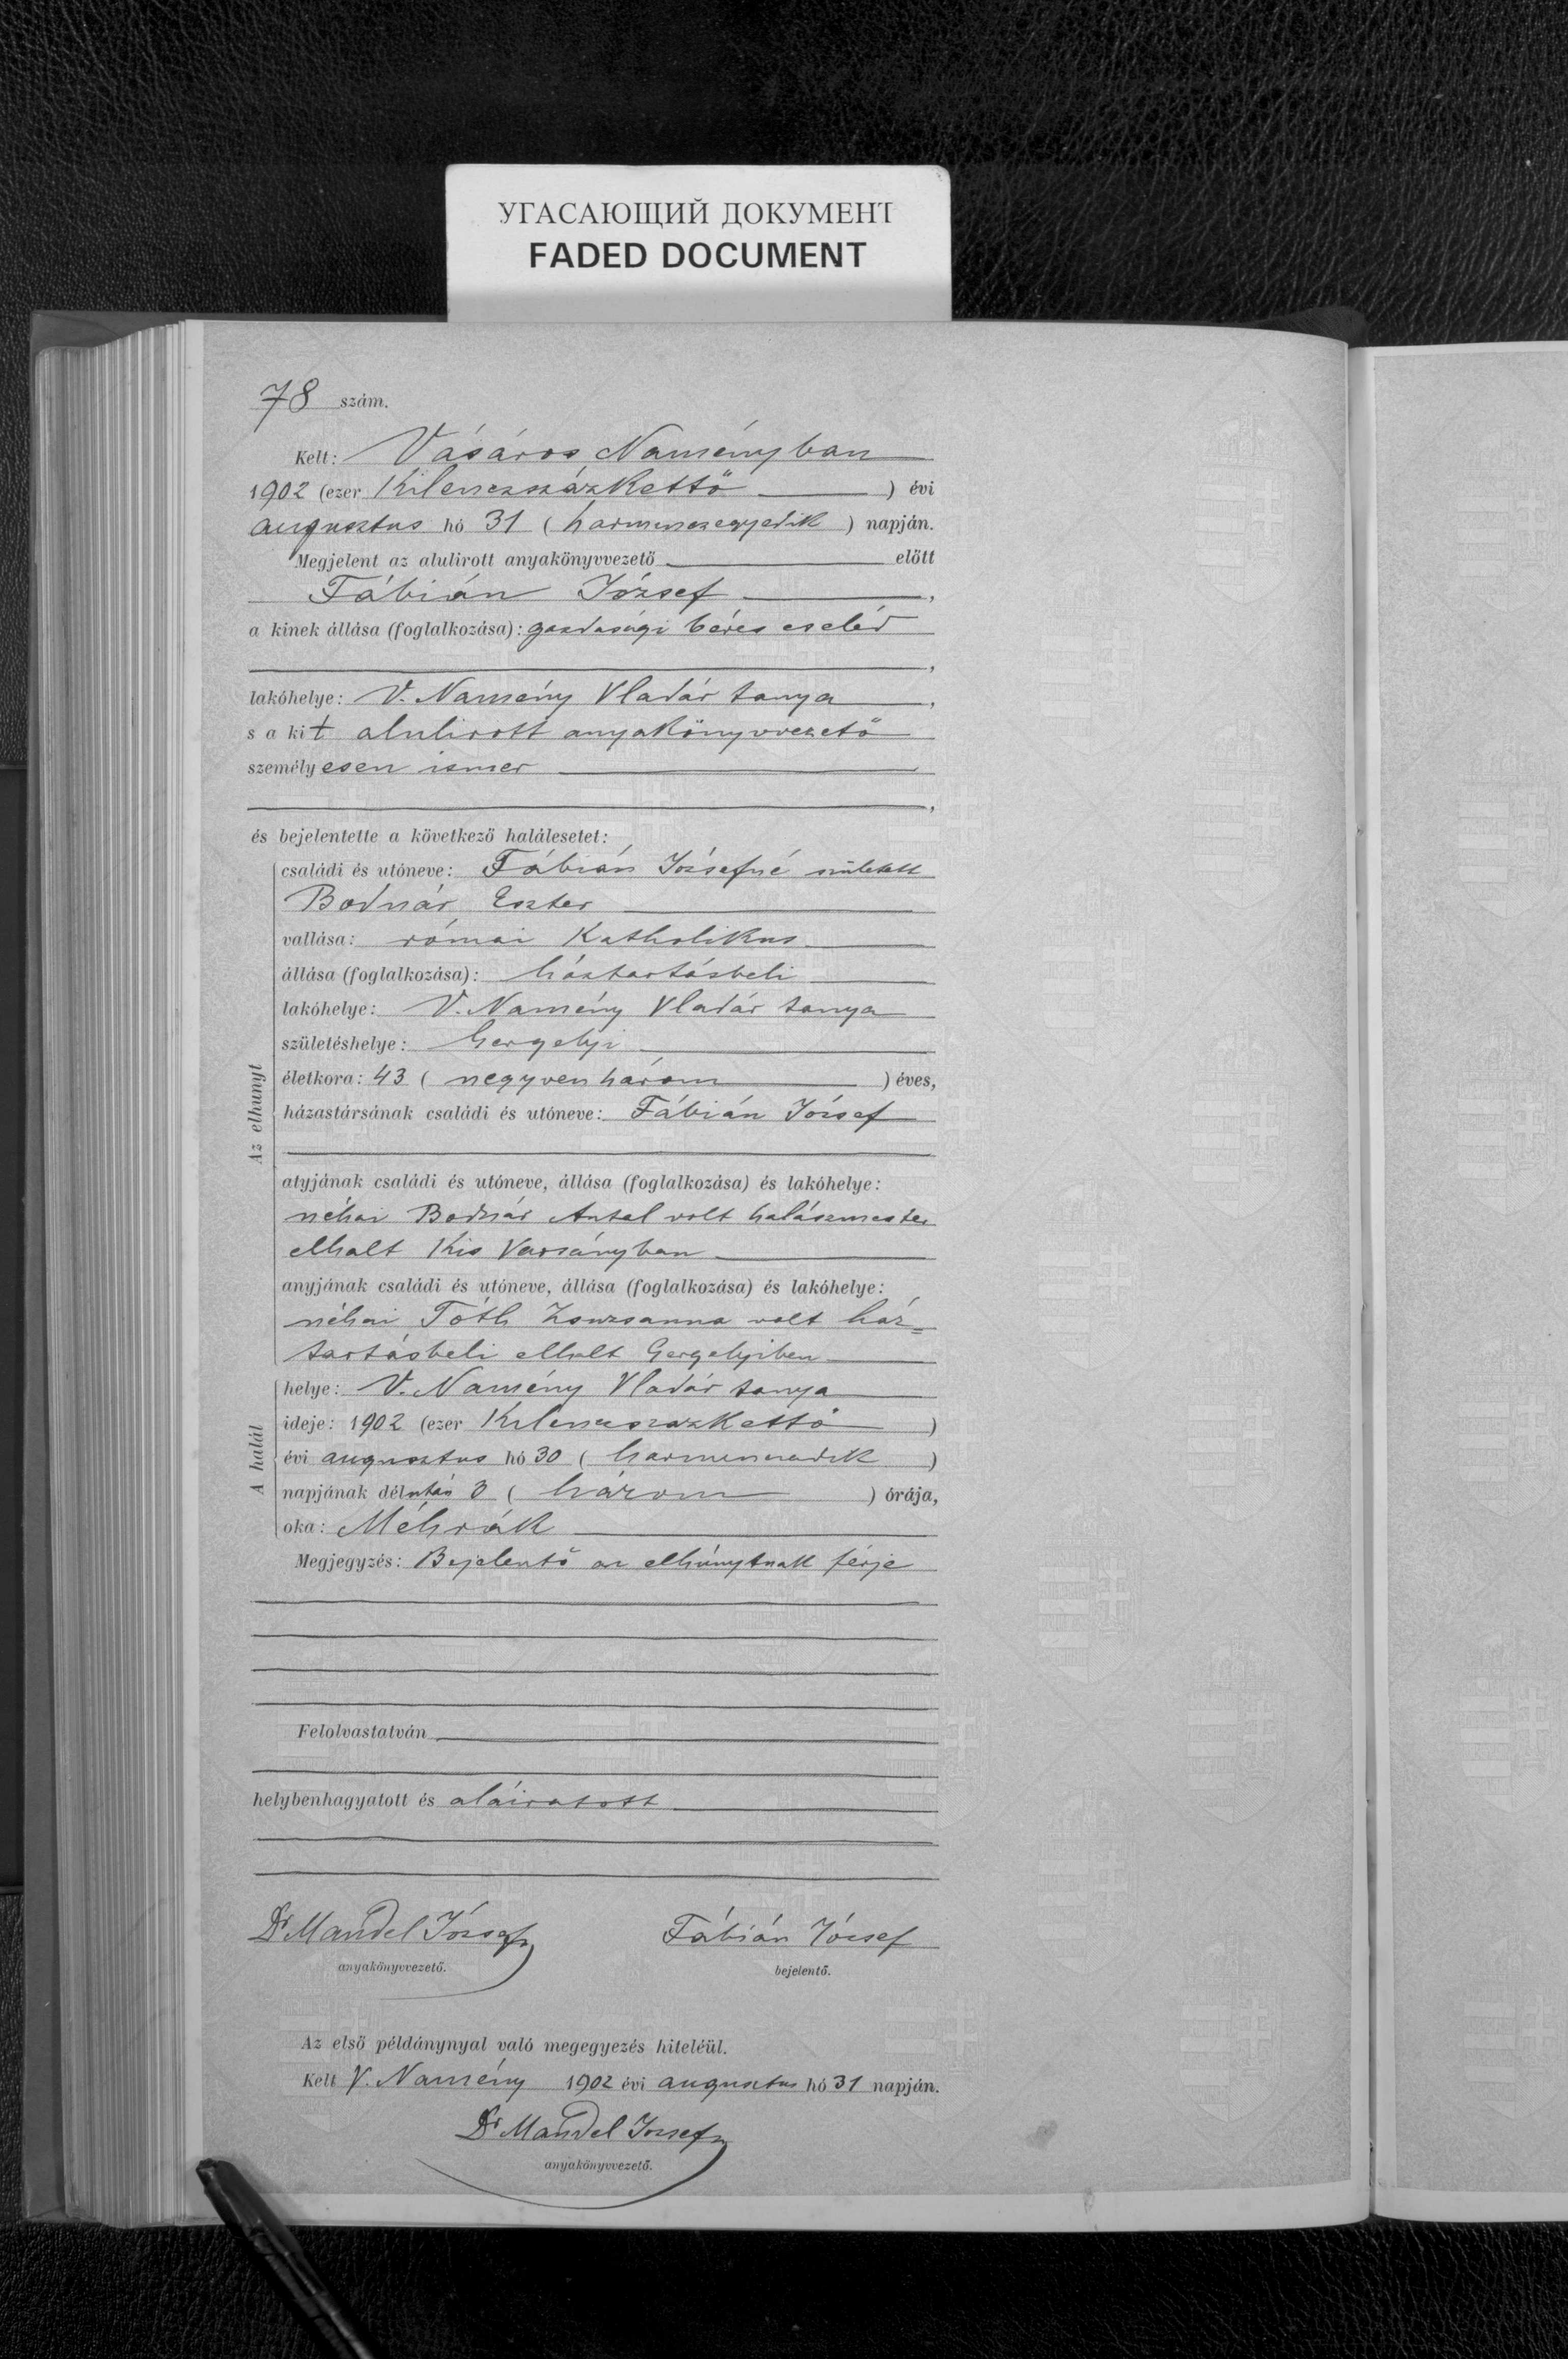 УГАСАЮЩИЙ ДОКУМЕНТ
FADED DOCUMENT
78 szám.
Kelt: Vásáros Naményban
1902 (ezer Kilenczszázkettő ) évi
augusztus hó 31 ( harmincegyedik ) napján.
Megjelent az alulirott anyakönyvvezető előtt
Fábián József ,
a kinek állása (foglalkozása): gazdasági béres cseléd
,
lakóhelye: V. Namény Vladár tanya ,
s a kit alulirott anyakönyvvezető
személyesen ismer
,
és bejelentette a következő halálesetet:
Az elhunyt
családi és utóneve: Fábián Józsefné született
Bodnár Eszter
vallása: római Katholikus
állása (foglalkozása): háztartásbeli
lakóhelye: V. Namény Vladár tanya
születéshelye: Gergelyi
életkora: 43 ( negyvenhárom ) éves,
házastársának családi és utóneve: Fábián József
atyjának családi és utóneve, állása (foglalkozása) és lakóhelye:
néhai Bodnár Antal volt halászmester
elhalt Kis Varsányban
anyjának családi és utóneve, állása (foglalkozása) és lakóhelye:
néhai Tóth Zsuzsanna volt ház=
tartásbeli elhalt Gergelyiben
A halál
helye: V. Namény Vladár tanya
ideje: 1902 (ezer Kilenczszázkettő )
évi augusztus hó 30 ( harminczadik )
napjának délután 3 ( három ) órája,
oka: Méhrák
Megjegyzés: Bejelentő az elhúnytnak férje
Felolvastatván
helybenhagyatott és aláiratott
Dr Mandel József
anyakönyvvezető.
Fábián József
bejelentő.
Az első példánynyal való megegyezés hiteléül.
Kelt V. Namény 1902 évi augusztus hó 31 napján.
Dr Mandel József
anyakönyvvezető.